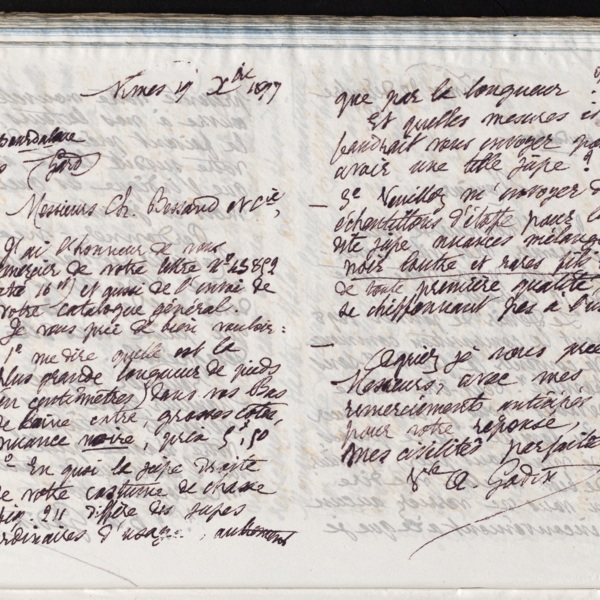 Nîmes 19 Xbre 1897
Bourdaloue
Gard
Messieurs Ch. Bossard et Cie,
J'ai l'honneur de vous
remercier de votre lettre N° 45852
et aussi de l'envoi de
votre catalogue général.
Je vous prie de bien vouloir :
1° me dire quelle est la
plus grande longueur de pieds
en centimètres dans vos Bas
de laine entre, grosses côtes,
nuance noire, prix 5f,50
2° En quoi la jupe droite
de votre costume de chasse
prix 211 diffère des jupes
ordinaires d'usage, autrement
que par la longueur ?
Et quelles mesures
faudrait vous envoyer pour
avoir une telle jupe ?
— 3° Veuillez m'envoyer
échantillons d'étoffe pour la
dite jupe, nuances mélange
noir loutre et
de toute première qualité,
se chiffonnant pas à l'us
— Agréez je vous prie
Messieurs, avec mes
remerciements anticipés
pour votre réponse,
mes civilités parfaites
Vve A Godin